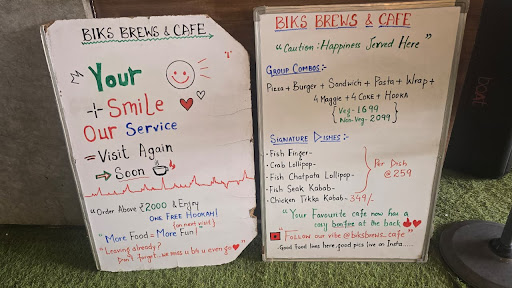 BIKS BREWS & CAFE
"Your
+ Smile
Our Service
= Visit Again
→ Soon
"Order Above ₹2000 & Enjoy
ONE FREE Hookah!
(on next visit)
"More Food = More Fun!
"Leaving already?
Don't forget...we miss u b4 u even go
BIKS BREWS & CAFE
"Caution: Happiness Served Here"
GROUP COMBOS:-
Pizza + Burger + Sandwich + Pasta + Wrap +
4 Maggie + 4 Coke + Hooka
{Veg - 1699
Non-Veg - 2099}
SIGNATURE DISHES:-
- Fish Finger-
- Crab Lollipop-
- Fish Chatpata Lollipop-
- Fish Seak Kabab-
- Chicken Tikka Kabab- 349/-
Per Dish
@ 259
"Your Favourite cafe now has a
cosy bonfire at the back
"Follow our vibe @biksbrews_cafe"
-Good food lives here, good pics live on Insta.....